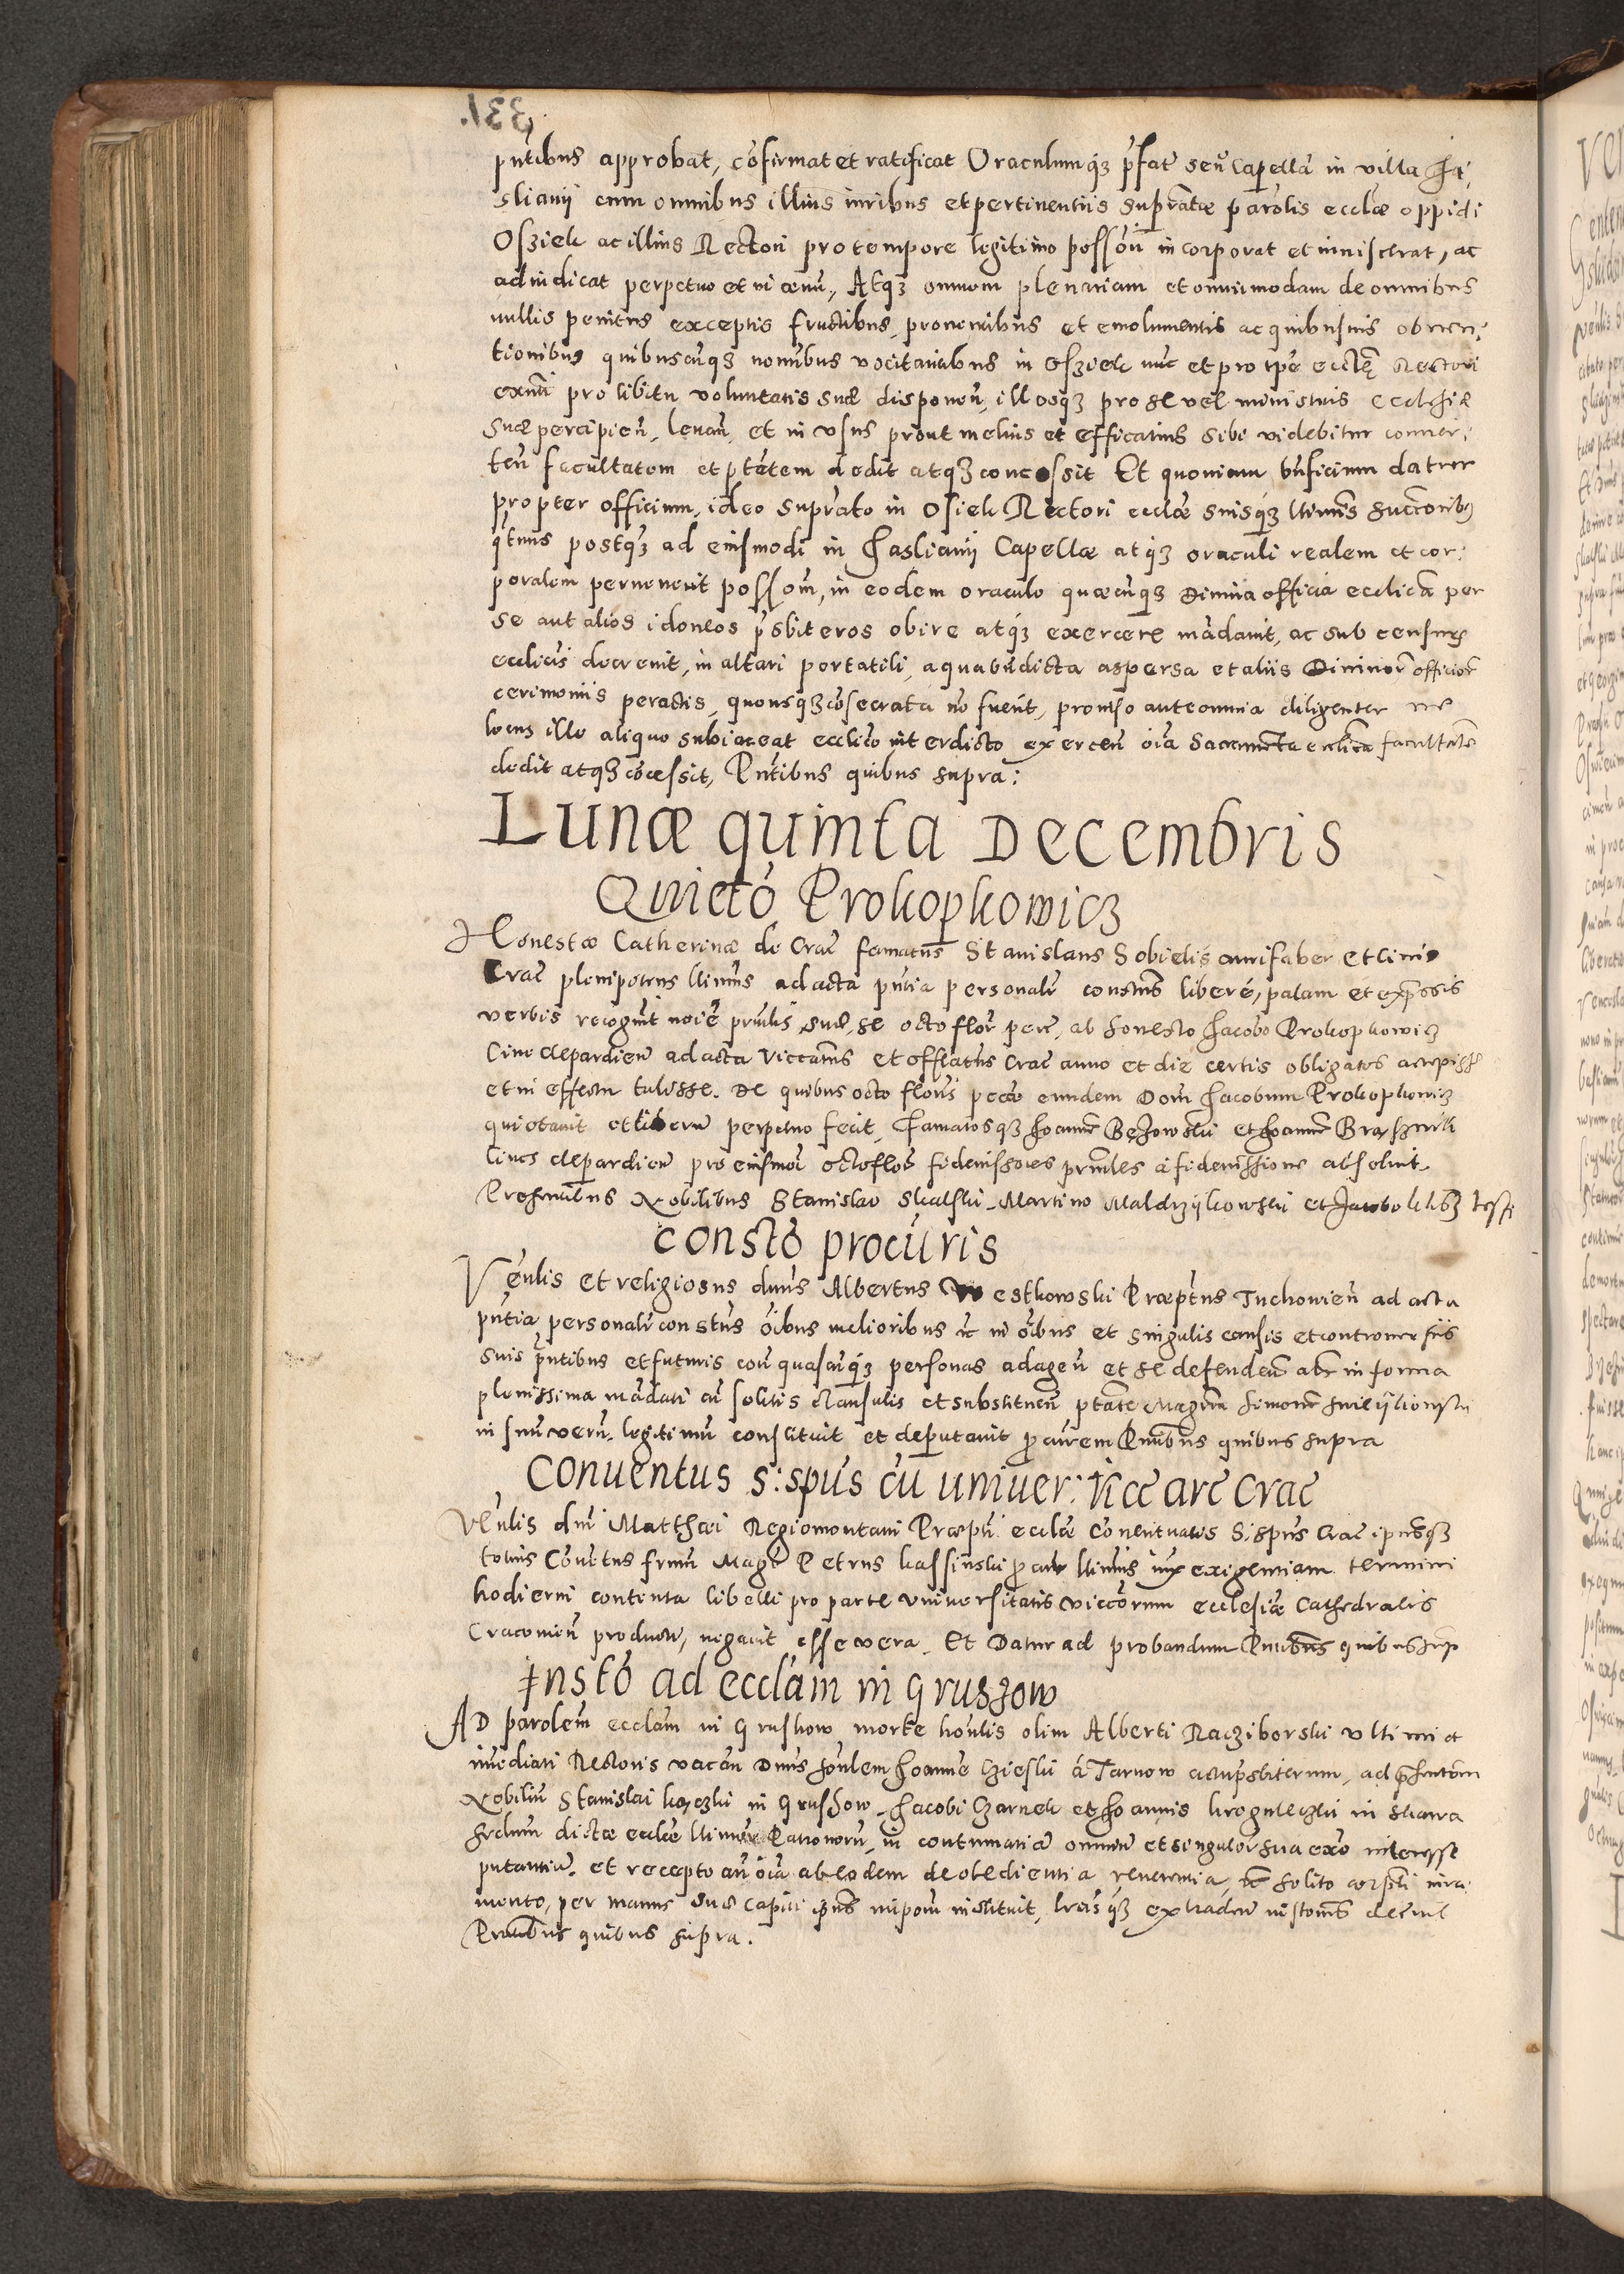 331.
pn̄tibus approbat, cōfirmat et ratificat Oraculumq3 p̄fat̄ seu Capellā in villa Ha:
slianij cum omnibus illius iuribus et pertinentiis suprȃtæ parōlis ecclæ oppidi
Os3iek ac illius Rectori pro tempore legitimo possōri incorporat et inuiscerat, ac
adiudicat perpetuo et in æuū, Atq3 omnem plenariam et omnimodam de omnibus
nullis penitus exceptis fructibus, prouentibus et emolumentis ac quibusuis obuen:
tionibus quibuscūq3 nomībus vocitatibus in Os3iek nūc et pro tpe ecclę Rectori
exnti pro libitu voluntatis suæ disponen̄, illosq3 pro se vel ministris ecclesiæ
suæ percipien̄, leuan̄, et in vsus prout melius et efficatius sibi videbitur conuer:
ten̄ facultatem et ptātem dedit atq3 concessit Et quoniam bn̄ficium datur
propter officium, ideo suprāto in Osiek Rectori ecclæ suisq3 llimis succoribus
q̄tenus postq3 ad eiusmodi in Haslianij Capellæ atq3 oraculi realem et cor:
poralem peruenerit possom̄, in eodem oraculo quæcūq3 Diuina officia ecclicā per
se aut alios idoneos p̄sbiteros obire atq3 exercere mādauit, ac sub censuris
ecclicis decreuit, in altari portatili, aqua bn̄dicta aspersa et aliis Diuinor̄ officior̄
cerimoniis peractis, quousq3 cōsecrata nō fuerit, prouiso ante omnia diligenter ne
locus ille aliquo subiaceat ecclico interdicto exercen̄ oīa Sacramenta ecclica facultatē
dedit atq3 cōcessit, Pn̄tibus quibus supra:
Lunæ quinta Decembris
Quietō Prokopkowic3
Honestæ Catherinæ de Crac̄ famatus Stanislaus Sobielis aurifaber et Ciuis
Crac̄ plenipotens llimus ad acta pn̄tia personalr̄ constus liberé, palam et expressis
verbis recognit noīe prn̄lis suæ, se octo flor̄ pecc̄, ab honesto Jacobo Prokopkowic3
Ciue clepardien̄ ad acta Viccatus et offlatus Crac̄ anno et die certis obligatos accepisse
et in effectu tulisse. De quibus octo floris pecc̄ eundem Dom̄ Jacobum Prokopkowic3
quietauit et liberū perpetuo fecit, famatosq3 Joannē Beȷowski et Joannē
Ciues clepardien̄ pro eiusmodi octo flor̄ fideiussores prn̄cles á fideiussione absoluit.
Presentibus Nobilibus Stanislao Skalski, Martino Maldrzijkowski et Jacobo testi
constō procuris
Venlis et religiosus dnus Albertus Westkowski Præptus Tuchouien̄ ad acta
pn̄tia personalr̄ constus oībus melioribus etc̄ in oībus et singulis causis et controuersiis
suis pn̄tibus et futuris con̄ quascūq3 personas ad agen̄ et se defenden̄ alr̄ in forma
plenissima mādati cū solitis clausulis et substituen̄ ptāte Magrm Simonē
in suū verū, legitimū constituit et deputauit p̄curem Pntibus quibus supra
Conuentus S: spus cū uniuer: vicc arc Crac
Venlis dni Matthæi Regiomontani Præpti ecclæ Conuentualis S: spus Crac̄ ipiusq3
totius Cōuētus frum Magr Petrus kassinski p̄curr llimus iux exigentiam termini
hodierni contenta libelli pro parte Vniuersitatis viccorum ecclesiæ Cathedralis
Cracouien̄ producti, negauit esse vera. Et Datur ad probandum Pntibus quibus sup
Instō ad ecclām in Grus3ow
AD parolem ecclām in Grushow morte honlis olim Alberti Rac3iborski vltimi et
īmediati Rectoris vacan̄ Dnus honlem Joannē á Tarnow actu p̄sbiterum, ad p̄sentōm
Nobiliū Stanislai in Grushow, Jacobi C3arnek et Joannis in
hrdum dictæ ecclæ llimor̄ Patronorū, in contumatiā omniū et singulor̄ sua exō interesse
putantiū, et recepto an̄ oīa ab eodem de obedientia, reuerentia, etc̄ solito corprali iura:
mento, per manus suæ capiti ipius impom̄ instituit, lrasq3 extraden̄ instomis decreuit
Pntibus quibus supra.